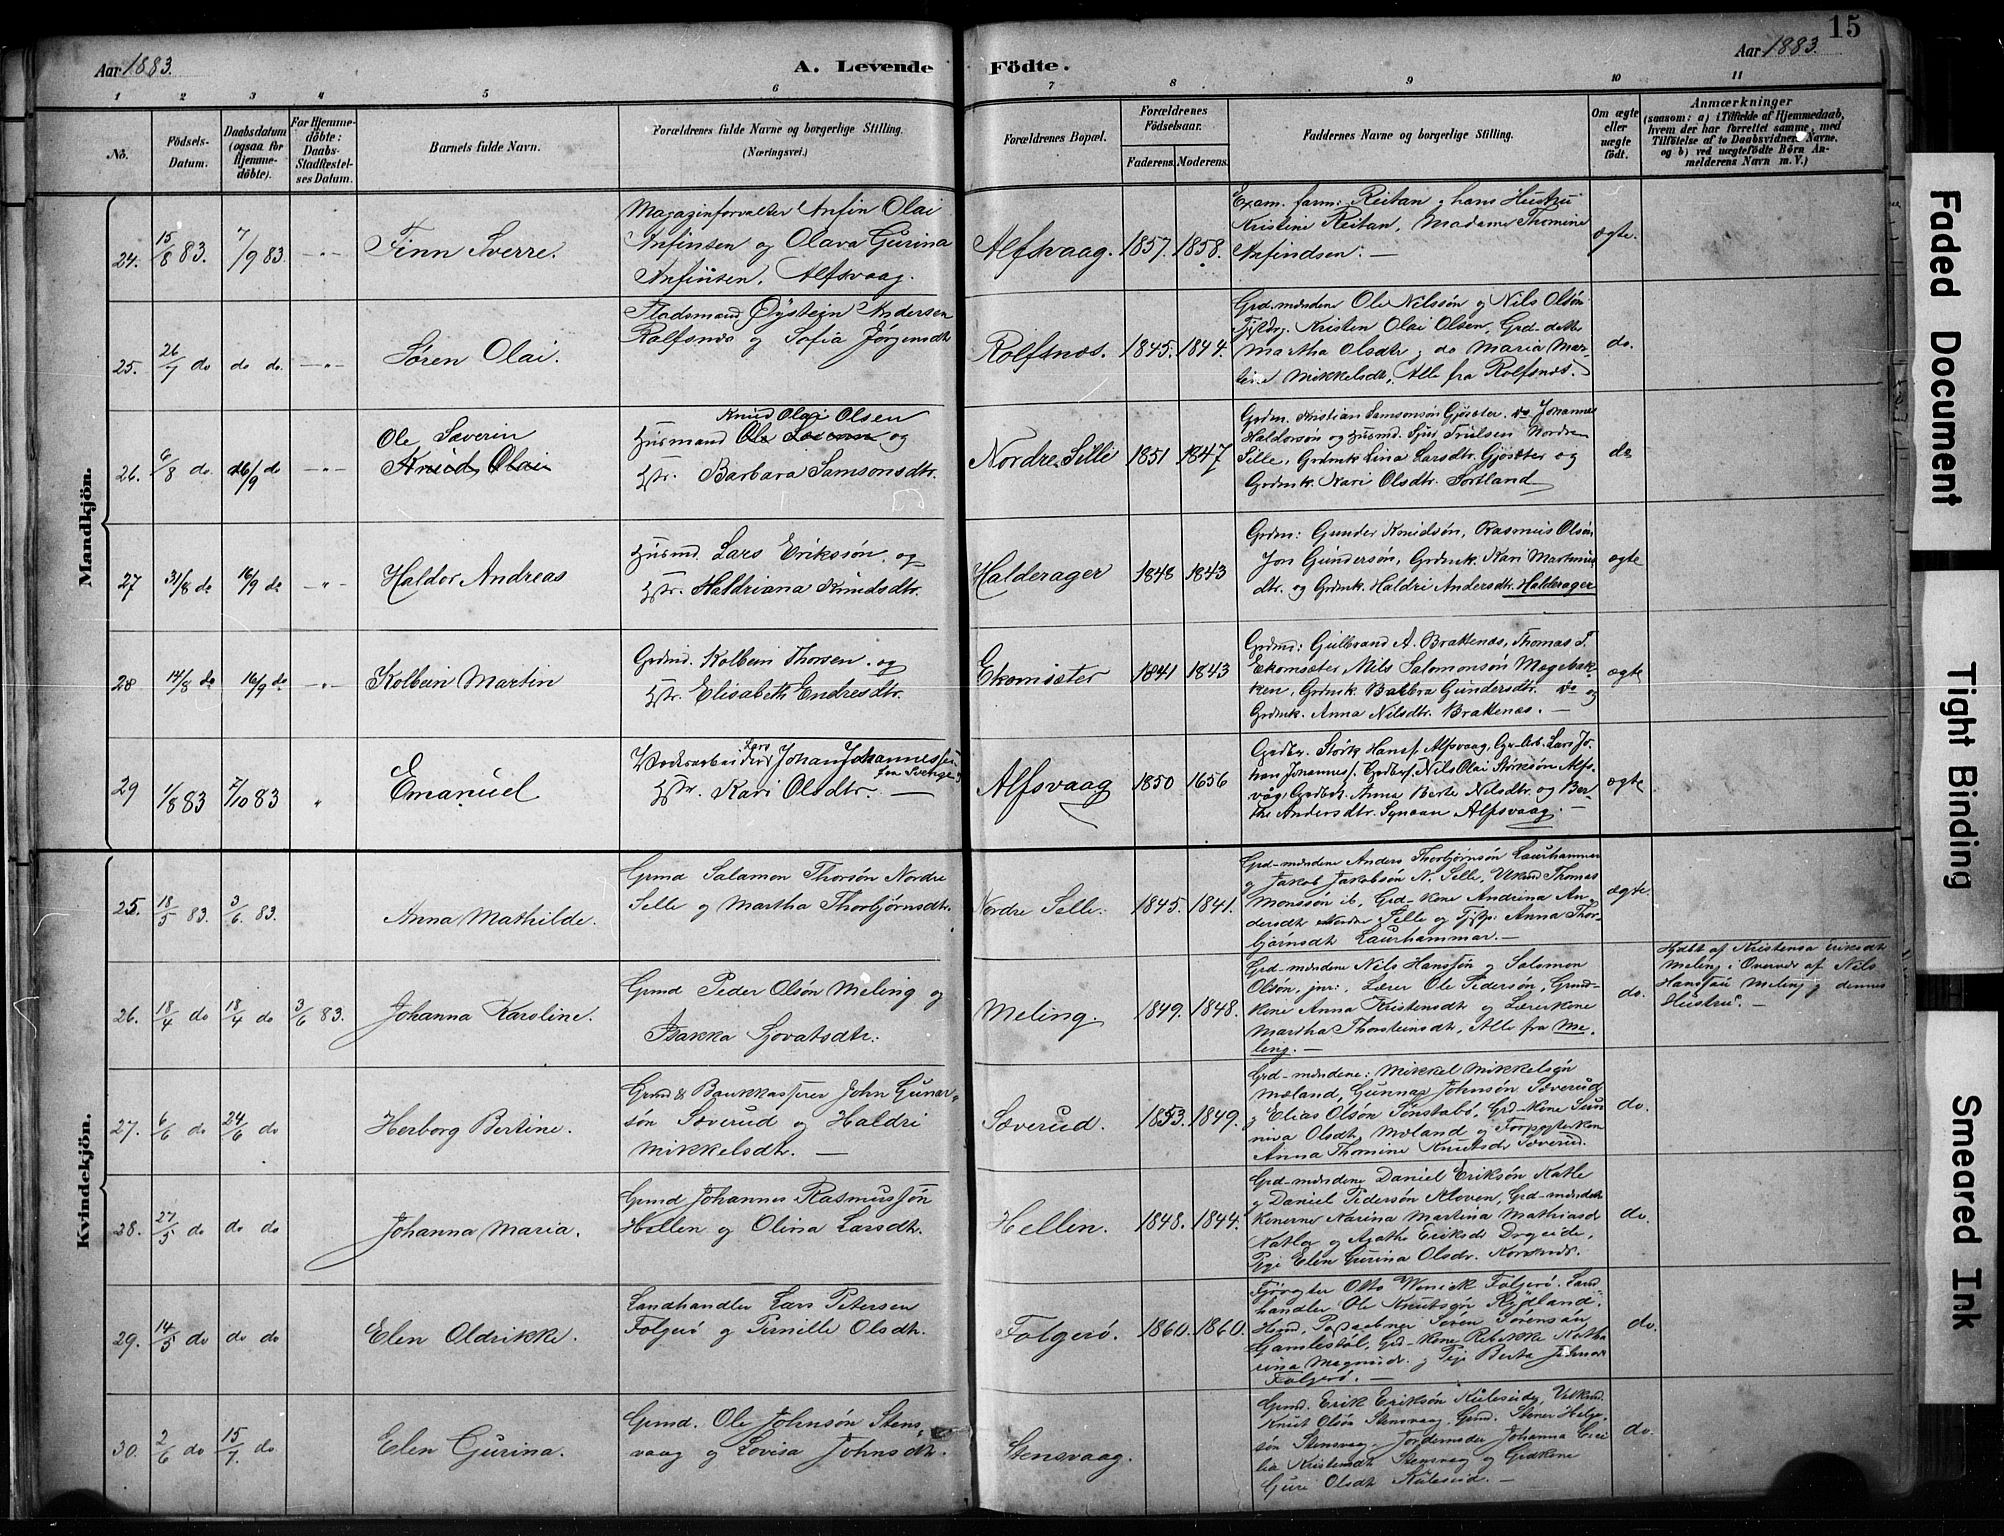 15
Aar 1883.
A. Levende Födte.
Aar 1883.
1 2 3 4 5 6 7 8 9 10 11
No.
Födsels-Datum.
Daabsdatum (ogsaa for Hjemme-döbte).
For Hjemme-döbte: Daabs-Stadfæstel-ses Datum.
Barnets fulde Navn.
Forældrenes fulde Navne og borgerlige Stilling.
(Næringsvei.)
Forældrenes Bopæl.
Forældrenes Födselsaar.
Faderens. Moderens.
Faddernes Navne og borgerlige Stilling.
Om ægte eller uægte födt.
Anmærkninger
(saasom: a) i Tilfælde af Hjemmedaab,
hvem der har forrettet samme, med
Tilföielse af to Daabsvidners Navne,
og b) ved uægtefödte Börn An-
melderens Navn m. V.)
Mandkjön.
24. 15/8 83. 7/9 83. -"- Finn Sverre.
Magazinforvalter Anfin Olai
Anfinsen og Olava Gurina
Anfinsen, Alfsvaag.
Alfsvaag. 1857. 1858.
Exam. farm: Reitan, hans Hustru
Kristine Reitan, Madame Thomine
Anfindsen. —
ægte.
25. 26/7 do do do. -"- Sören Olai.
Pladsmand Øystein Andersen
Rolfsnæs og Sofia Jørgensdt
Rolfsnæs. 1845. 1844.
Grd.mændene Ole Nilssön og Nils Olsön
Kristen Olai Olsen, Grd.dettre
Martha Olsdtr, do Maria Mar-
tina Mikkelsdt, Alle fra Rolfsnæs.
do.
26. 6/8 do. 16/9 do -"- Ole Severin
Knud Olai
Knud Olai Olsen
Husmand Ole og
Hstr. Barbara Samsonsdtr.
Nordre Selle 1851 1847
Grdm. Kristian Samsonsön Gjösæter, do Johannes
Haldorsön og Husmd. Sjur Trulsen Nordre
Sille, Grdmk Lina Larsdtr. Gjösæter og
Grdmk. Kari Olsdtr. Sortland
do
27 31/8 do 16/9 do -"- Haldor Andreas
Husmd. Lars Eriksön, og
Hstr. Haldriana Knudsdtr.
Halderager 1848 1843
Grdm: Gunder Knudsön, Rasmus Olsön
Jon Gundersön, Grdmk. Kari Markmus
dtr. og Grdmk. Haldri Andersdtr. Halderager
ægte
28 14/8 do 16/9 do -"- Kolbein Martin
Grdmd. Kolbein Thorsen. og
Hstr. Elisabeth Endresdtr.
Ekomsæter 1841 1843
Grdmd: Gulbrand A. Brakkenæs, Thomas T.
Ekomsæter, Nils Salomonsön Mægebak-
ken, Grdmk Barbra Gundersdtr. do og
Grdmk. Anna Nilsdtr. Brakkenæs. —
ægte
29 1/8 83 7/10 83 " Emanuel
Lars
Johan Johannessen
fra Sverge
Hstr. Kari Olsdtr. —
Alfsvaag 1850 1656
Grdbr. Störk Hans. Alfsvaag, Lars Jo-
han Johannes. Nils Olai Störksön Alfs-
våg, Anna Berte Nilsdtr. og Ber-
the Andersdtr. Alfsvaag. —
ægte
Kvindekjön.
25. 18/5 83. 3/6. 83. Anna Mathilde.
Grmd Salamon Thorsön Nordre
Selle og Martha Thorbjörnsdt.
Nordre Selle. 1845. 1841.
Grd-mændene Anders Thorbjörnsön Laurhammer
og Jakob Jakobsön N. Selle, Thomas
Monssön ib, Grd-kone Andrina An-
dersdt Nordre Selle og Anna Thor-
björnsdt Laurhammar. —
ægte
26. 18/4 do 18/4 do 3/6 83. Johanna Karoline.
Grmd Peder Olsön Meling og
Bakka Govatsdt.
Meling. 1849. 1848.
Grd-mændene Nils Hanssön og Salamon
Olsön, jnr., Lærer Ole Pedersön, Grmd-
kone Anna Kristensdt og Lærerkone
Martha Thorsteinsdt, Alle fra Me-
ling. —
do.
Hjdbt af Kristensa Eriksdt
Meling i Overvær af Nils
Hanssön Meling og dennes
Hustru.
27. 6/6 do 24/6 do Herborg Bertine.
Grmd & Bankkasserer John Gunar-
sön Sæverud og Haldri
Mikkelsdt. —
Sæverud. 1853. 1849.
Grd-mændene: Mikkel Mikkelsön
Mæland, Gunnar Johnsön Sæverud
og Elias Olsön Sönstabö, Grd-kone Sun
niva Olsdt Mæland og
Anna Thomine Knutsdt Sæverud.
do.
28. 27/5 do do do Johanna Maria.
Grmd Johannes Rasmussön
Hellen og Olina Larsdt.
Hellen. 1848. 1844.
Grd-mændene Daniel Eriksön Katle
og Daniel Pedersön Kloven, Grd-mænds-
konerne Narina Martina Mathiasd
Katla og Agathe Eriksdt
Pige Elen Gurina Olsdt.
do.
29. 14/5 do do do Elen Oldrikke.
Landhandler Lars Petersen
Folgerö og Pernille Olsdt.
Folgerö. 1860. 1860.
Otto Folgerö. Land
handler Ole Knutsön Rydland.
Sören Sörensön
Gamlestöl, Grd-kone Rebekke Katha
rina og Pige Berta
Folgerö. —
do.
30. 2/6 do 15/7. do Elen Gurina.
Grmd. Ole Johnsön Stens-
vaag og Lovisa Johnsdt.
Stensvaag.
Grmd. Erik Eriksön Kuleseide,
Knut Olsön Stensvaag, Grmd. Stener Helge-
sön Stensvaag. Jordemoder Johanna Ceci
lia Kristensdt Stensvaag og Grdkone
Guri Olsdt Kuleseid. —
do.
Faded Document
Tight Binding
Smeared Ink